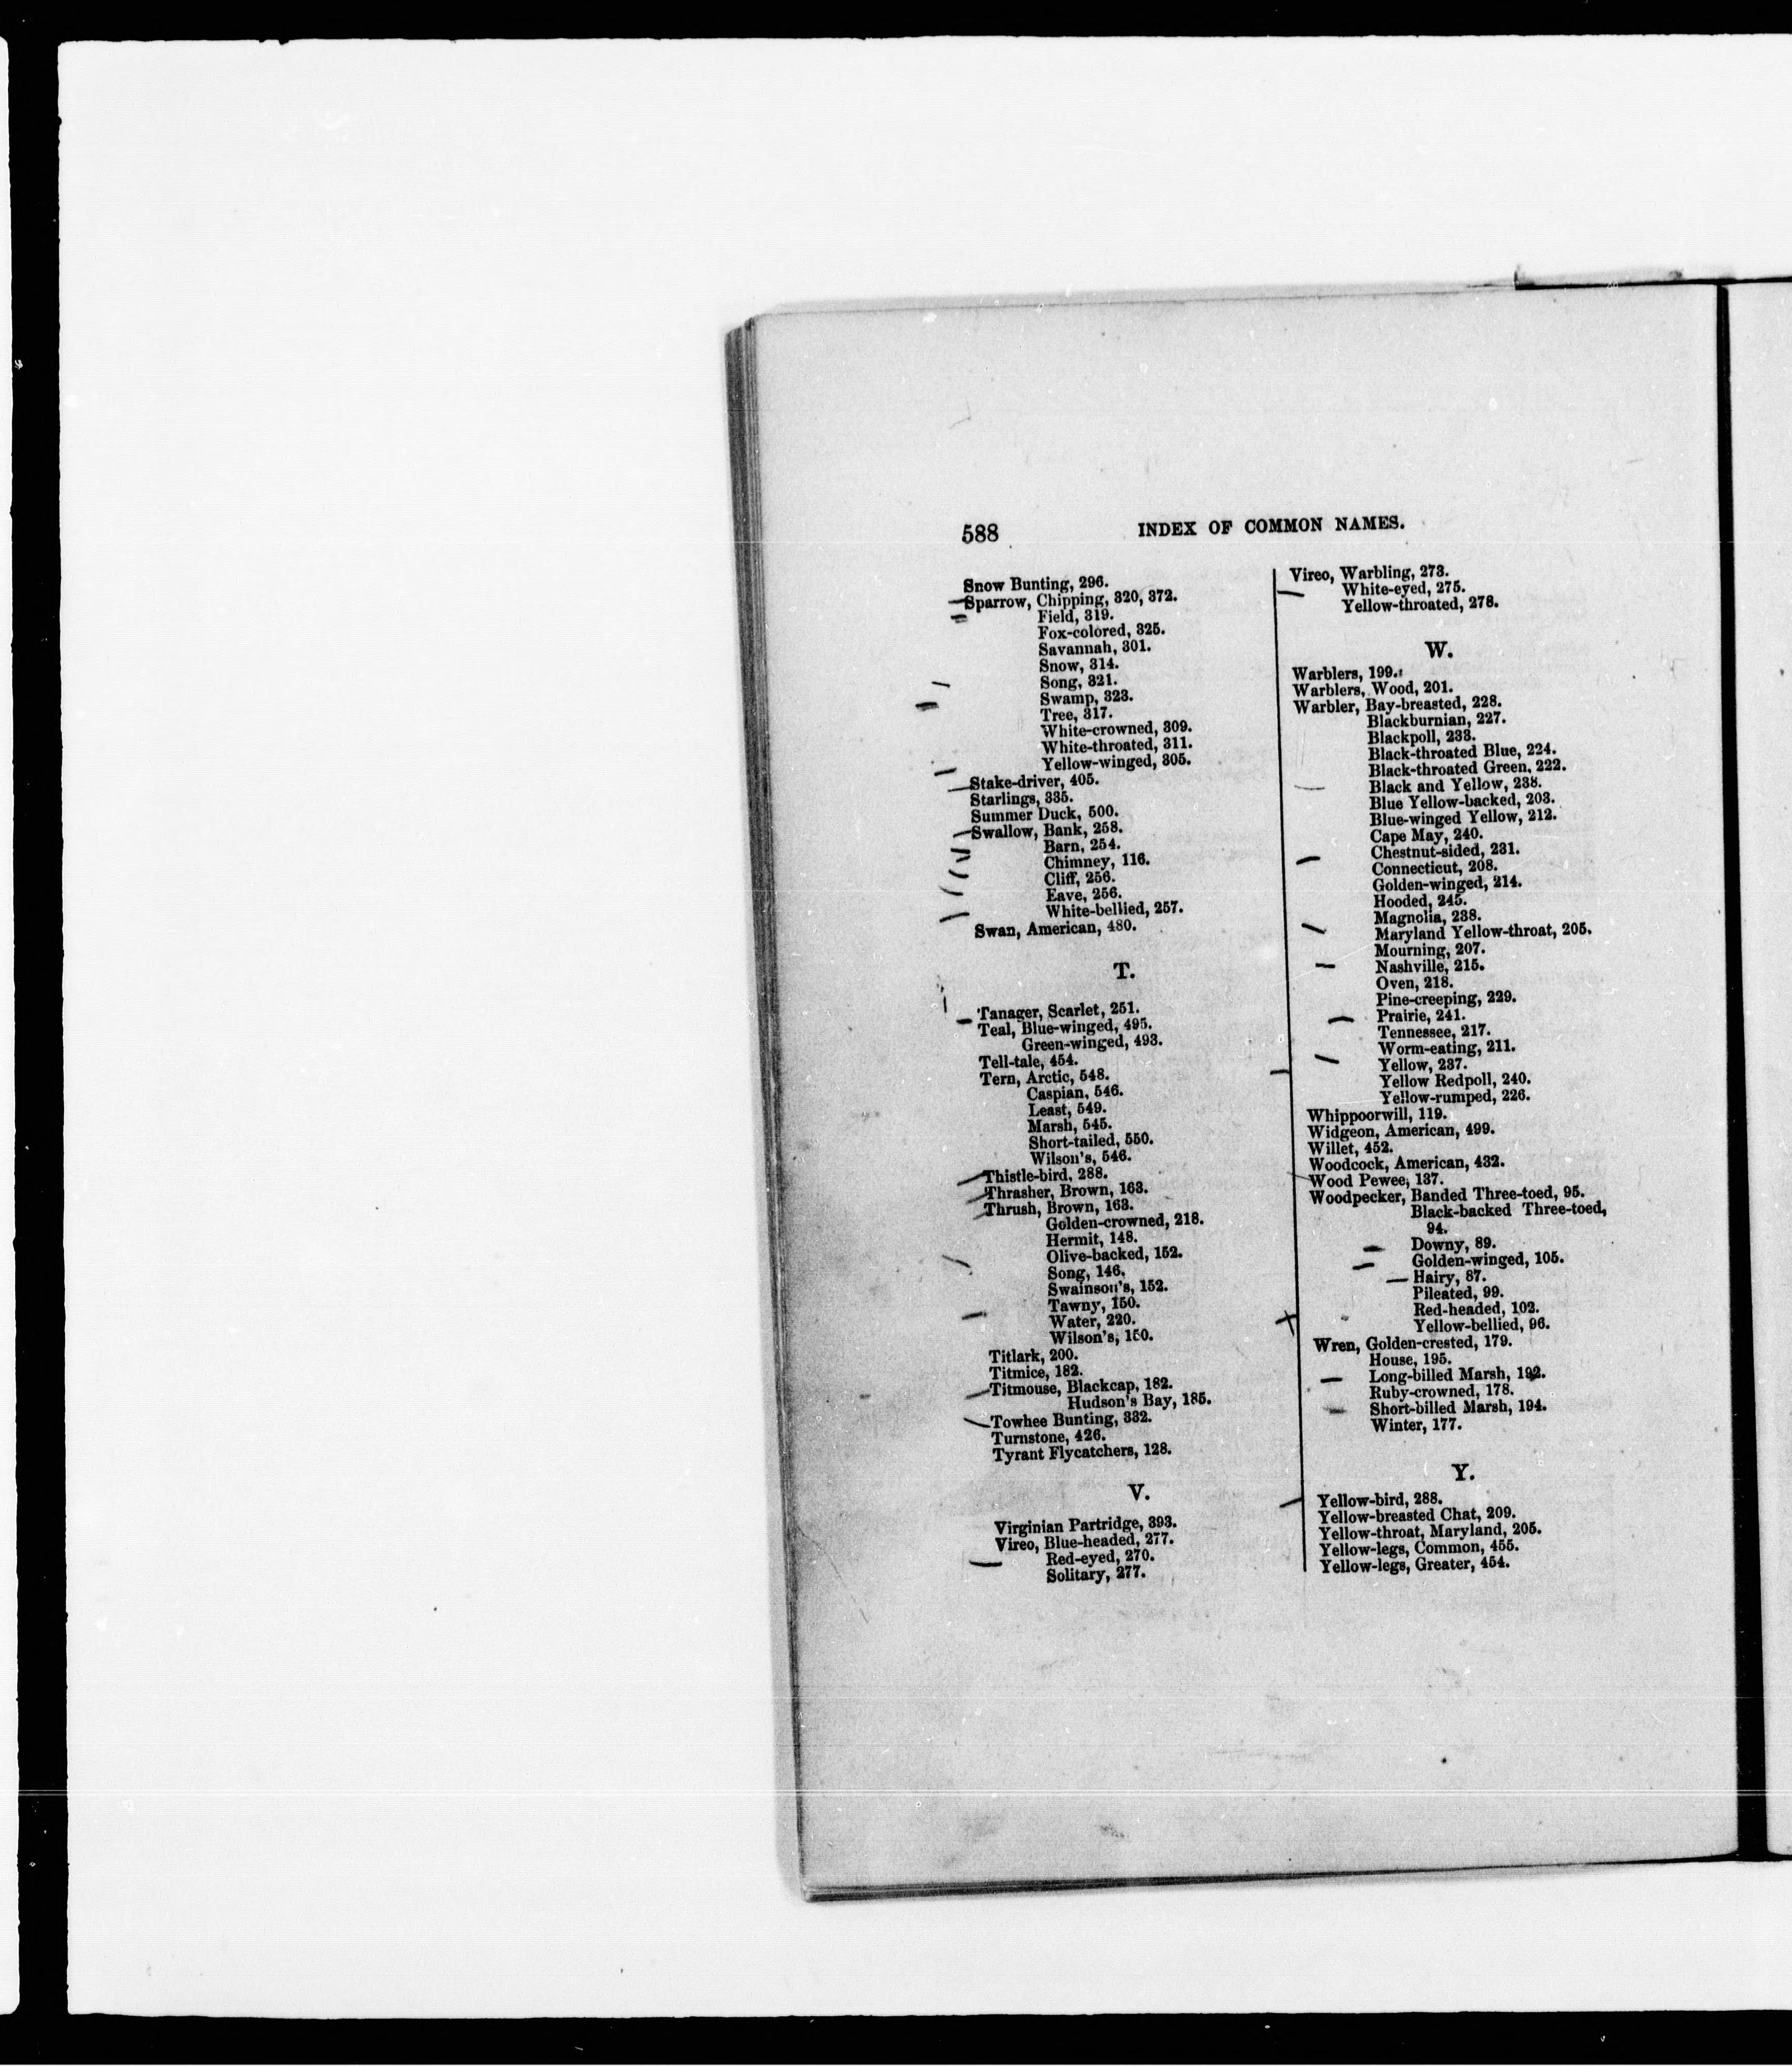 588
INDEX OF COMMON NAMES.
Snow Bunting, 296.
Sparrow, Chipping, 320, 372.
Field, 319.
Fox-colored, 325.
Savannah, 301.
Snow, 314.
Song, 321.
Swamp, 323.
Tree, 317.
White-crowned, 309.
White-throated, 311.
Yellow-winged, 305.
Stake-driver, 405.
Starlings, 335.
Summer Duck, 500.
Swallow, Bank, 258.
Barn, 254.
Chimney, 116.
Cliff, 256.
Eave, 256.
White-bellied, 257.
Swan, American, 480.
T.
Tanager, Scarlet, 251.
Teal, Blue-winged, 495.
Green-winged, 493.
Tell-tale, 454.
Tern, Arctic, 548.
Caspian, 546.
Least, 549.
Marsh, 545.
Short-tailed, 550.
Wilson's, 546.
Thistle-bird, 288.
Thrasher, Brown, 163.
Thrush, Brown, 163.
Golden-crowned, 218.
Hermit, 148.
Olive-backed, 152.
Song, 146.
Swainson's, 152.
Tawny, 150.
Water, 220.
Wilson's, 150.
Titlark, 200.
Titmice, 182.
Titmouse, Blackcap, 182.
Hudson's Bay, 185.
Towhee Bunting, 332.
Turnstone, 426.
Tyrant Flycatchers, 128.
V.
Virginian Partridge, 393.
Vireo, Blue-headed, 277.
Red-eyed, 270.
Solitary, 277.
Vireo, Warbling, 273.
White-eyed, 275.
Yellow-throated, 278.
W.
Warblers, 199.
Warblers, Wood, 201.
Warbler, Bay-breasted, 228.
Blackburnian, 227.
Blackpoll, 233.
Black-throated Blue, 224.
Black-throated Green, 222.
Black and Yellow, 238.
Blue Yellow-backed, 203.
Blue-winged Yellow, 212.
Cape May, 240.
Chestnut-sided, 231.
Connecticut, 208.
Golden-winged, 214.
Hooded, 245.
Magnolia, 238.
Maryland Yellow-throat, 205.
Mourning, 207.
Nashville, 215.
Oven, 218.
Pine-creeping, 229.
Prairie, 241.
Tennessee, 217.
Worm-eating, 211.
Yellow, 237.
Yellow Redpoll, 240.
Yellow-rumped, 226.
Whippoorwill, 119.
Widgeon, American, 499.
Willet, 452.
Woodcock, American, 432.
Wood Pewee, 137.
Woodpecker, Banded Three-toed, 95.
Black-backed Three-toed,
94.
Downy, 89.
Golden-winged, 105.
Hairy, 87.
Pileated, 99.
Red-headed, 102.
Yellow-bellied, 96.
Wren, Golden-crested, 179.
House, 195.
Long-billed Marsh, 192.
Ruby-crowned, 178.
Short-billed Marsh, 194.
Winter, 177.
Y.
Yellow-bird, 288.
Yellow-breasted Chat, 209.
Yellow-throat, Maryland, 205.
Yellow-legs, Common, 455.
Yellow-legs, Greater, 454.